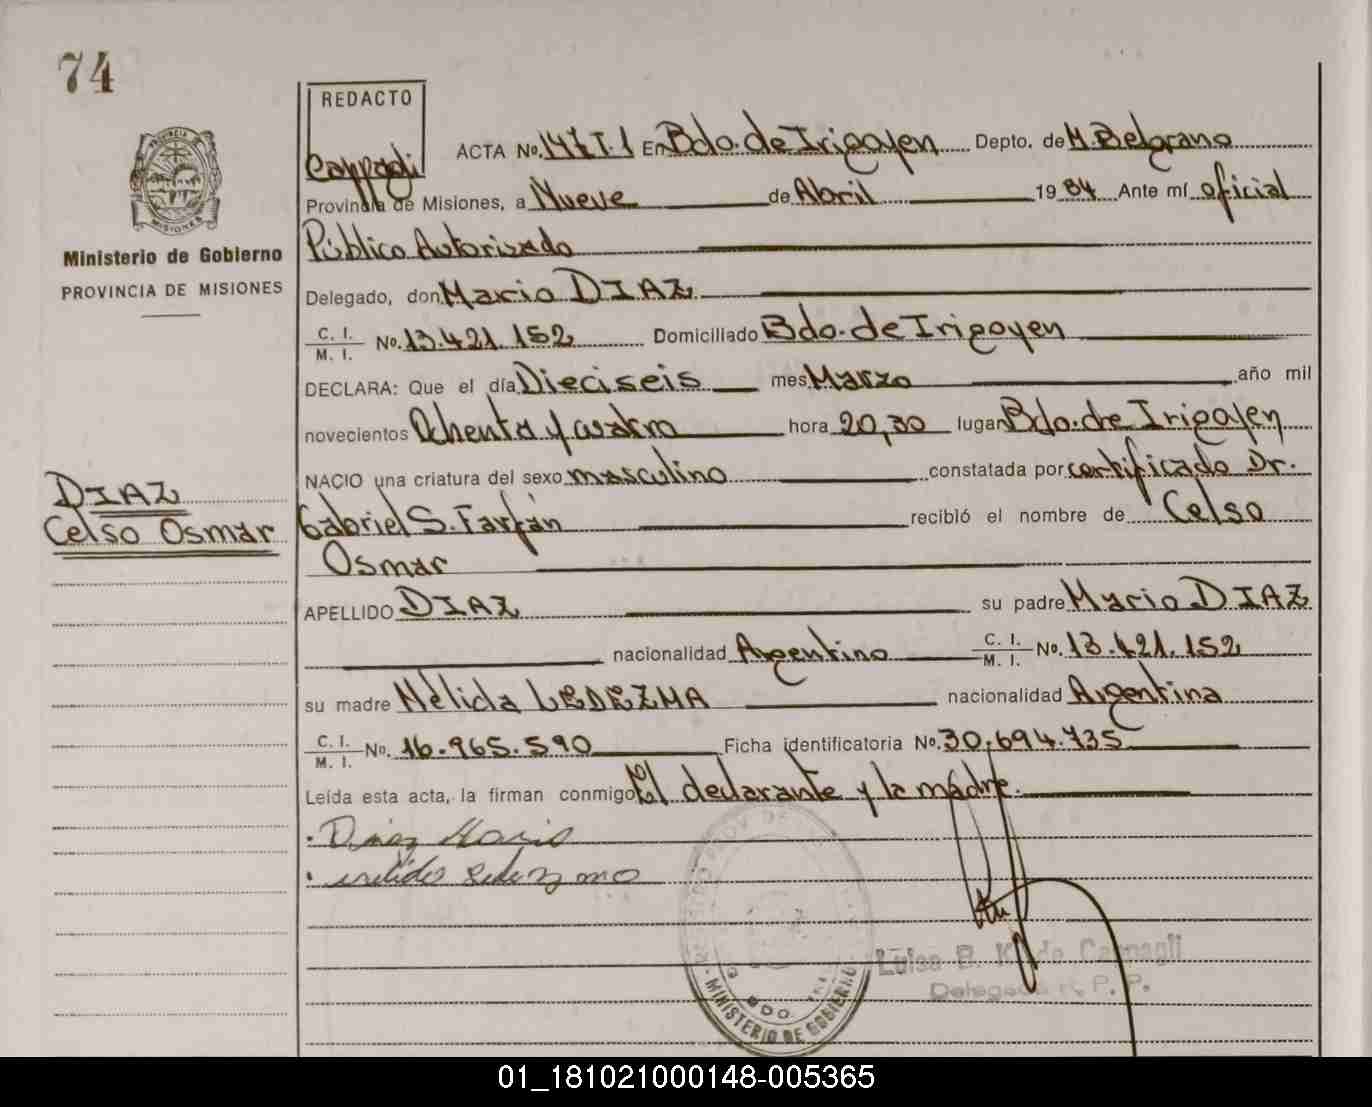 74
REDACTO
PROVINCIA DE MISIONES
ACTA No. 147 T.1 En Bdo. de Irigoyen Depto. de M. Belgrano
Provincia de Misiones, a Nueve de Abril 1984 Ante mí oficial
Ministerio de Gobierno
PROVINCIA DE MISIONES
Público Autorizado
Delegado, don Mario DIAZ
C. I.
M. I. No. 13.421.152 Domiciliado Bdo. de Irigoyen
DECLARA: Que el día Dieciseis mes Marzo año mil
novecientos Ochenta y cuatro hora 20,30 lugar Bdo. de Irigoyen
NACIO una criatura del sexo masculino constatada por certificado Dr.
DIAZ
Celso Osmar
Gabriel S. Farfán recibió el nombre de Celso
Osmar
APELLIDO DIAZ su padre Mario DIAZ
nacionalidad Argentino C. I. M. I. No. 13.421.152
su madre Nélida LEDEZMA nacionalidad Argentina
C. I.
M. I. No. 16.965.590 Ficha identificatoria No. 30.694.735
Leída esta acta, la firman conmigo El declarante y la madre.
Diaz Mario
nelida Ledezma
MINISTERIO DE GOBIERNO
Luisa B. K. de Carpagli
Delegada R. P. P.
01_181021000148-005365